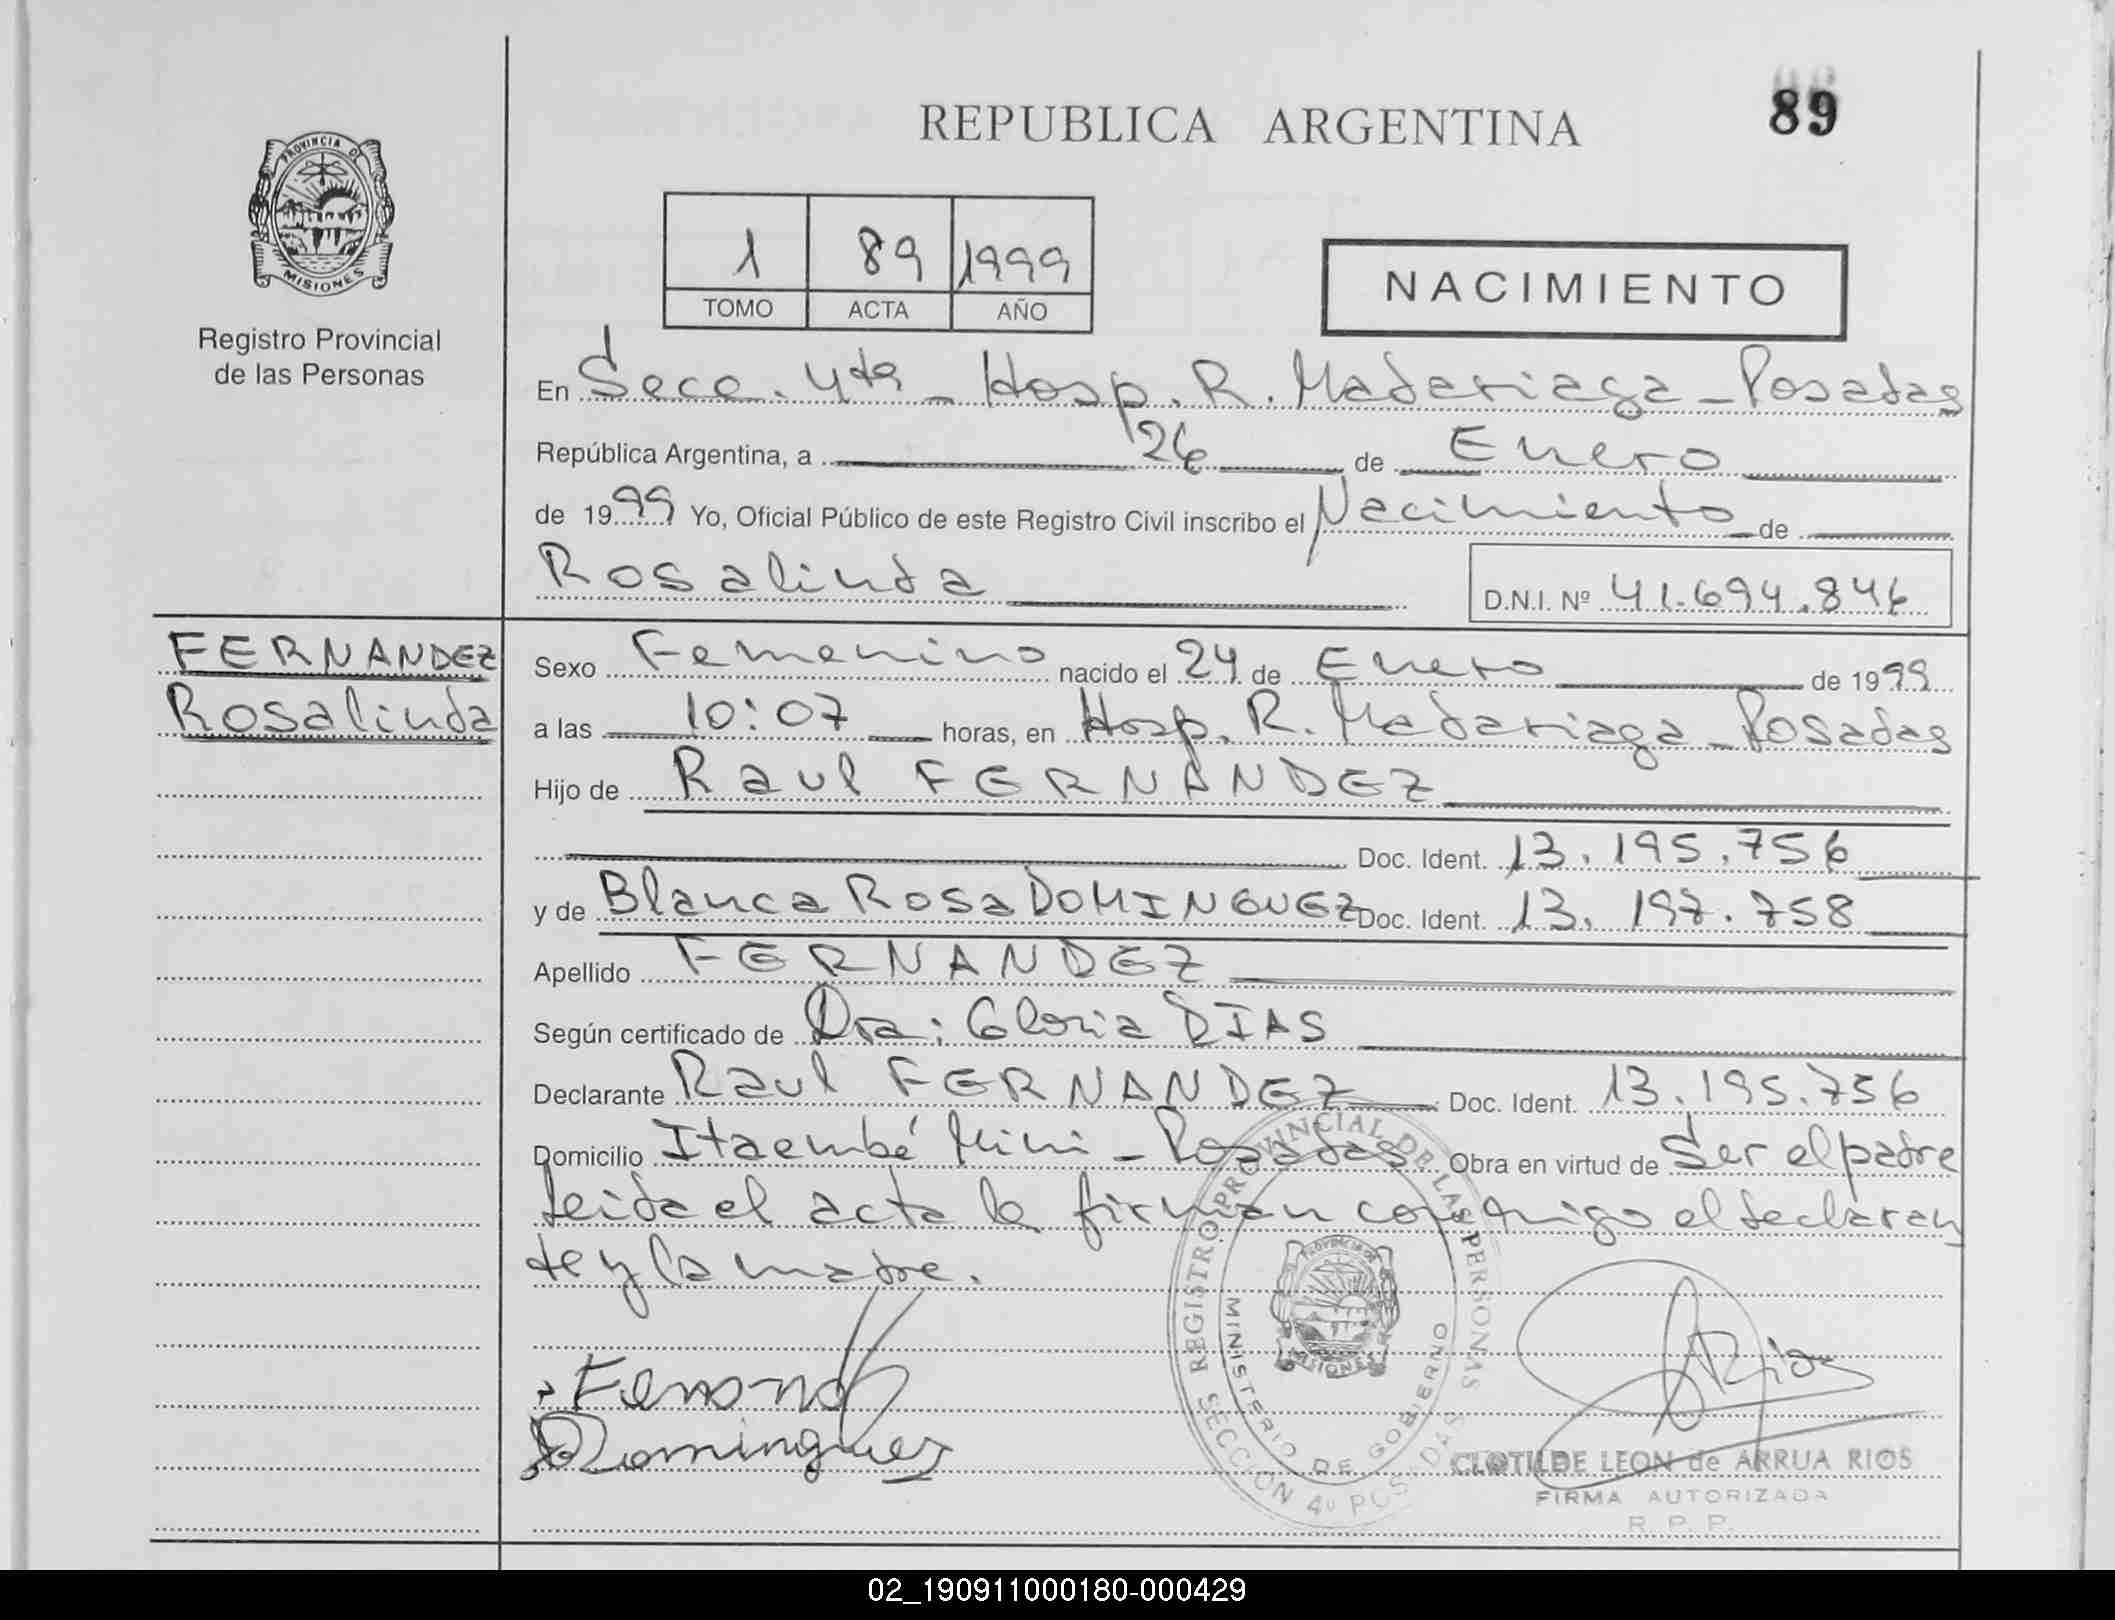 REPUBLICA ARGENTINA
89
PROVINCIA DE
MISIONES
Registro Provincial
de las Personas
1 89 1999
TOMO ACTA AÑO
NACIMIENTO
En Secc. 4ta - Hosp. R. Madariaga - Posadas
República Argentina, a 26 de Enero
de 1999 Yo, Oficial Público de este Registro Civil inscribo el Nacimiento de
Rosalinda
D.N.I. Nº 41.694.846
FERNANDEZ
Rosalinda
Sexo Femenino nacido el 24 de Enero de 1999
a las 10:07 horas, en Hosp. R. Madariaga - Posadas
Hijo de Raul FERNANDEZ
Doc. Ident. 13.195.756
y de Blanca Rosa DOMINGUEZ Doc. Ident. 13.197.758
Apellido FERNANDEZ
Según certificado de Dra: Gloria DIAS
Declarante Raul FERNANDEZ Doc. Ident. 13.195.756
Domicilio Itaembé Mini - Posadas Obra en virtud de Ser el padre
Leida el acta la firman conmigo el declaran
te y la madre.
REGISTRO PROVINCIAL DE LAS PERSONAS
MINISTERIO DE GOBIERNO
SECCION 4º POSADAS
PROVINCIA DE
MISIONES
Dominguez
ARios
CLOTILDE LEON de ARRUA RIOS
FIRMA AUTORIZADA
R. P. P.
02_190911000180-000429